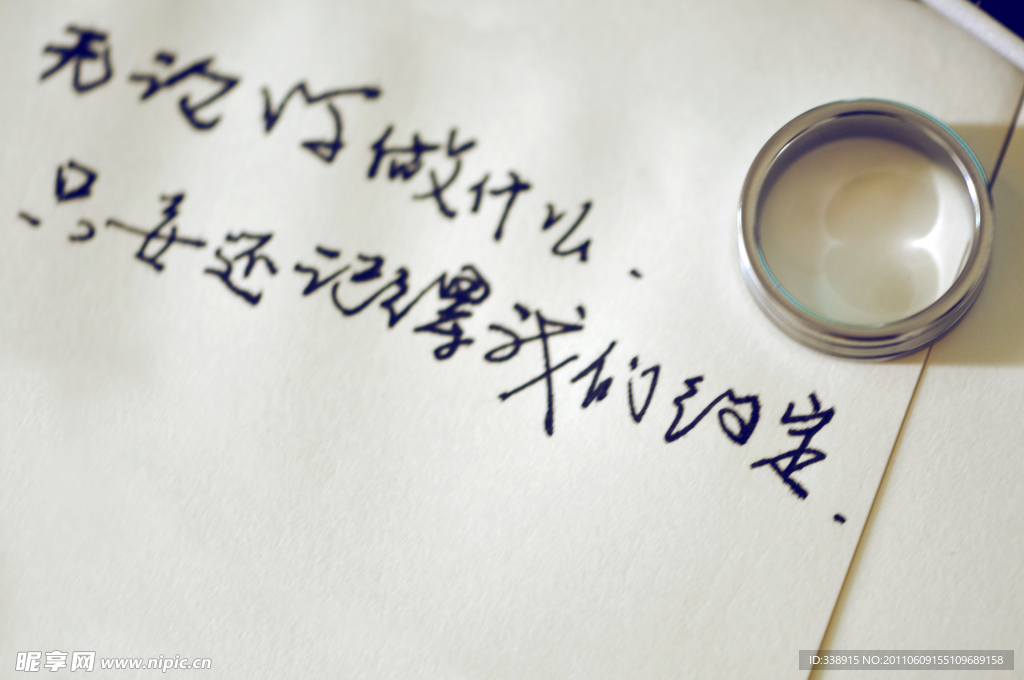 无论你做什么.
只要还记得我们约定.
昵享网 www.nipic.cn
ID:338915 NO:20110609155109689158